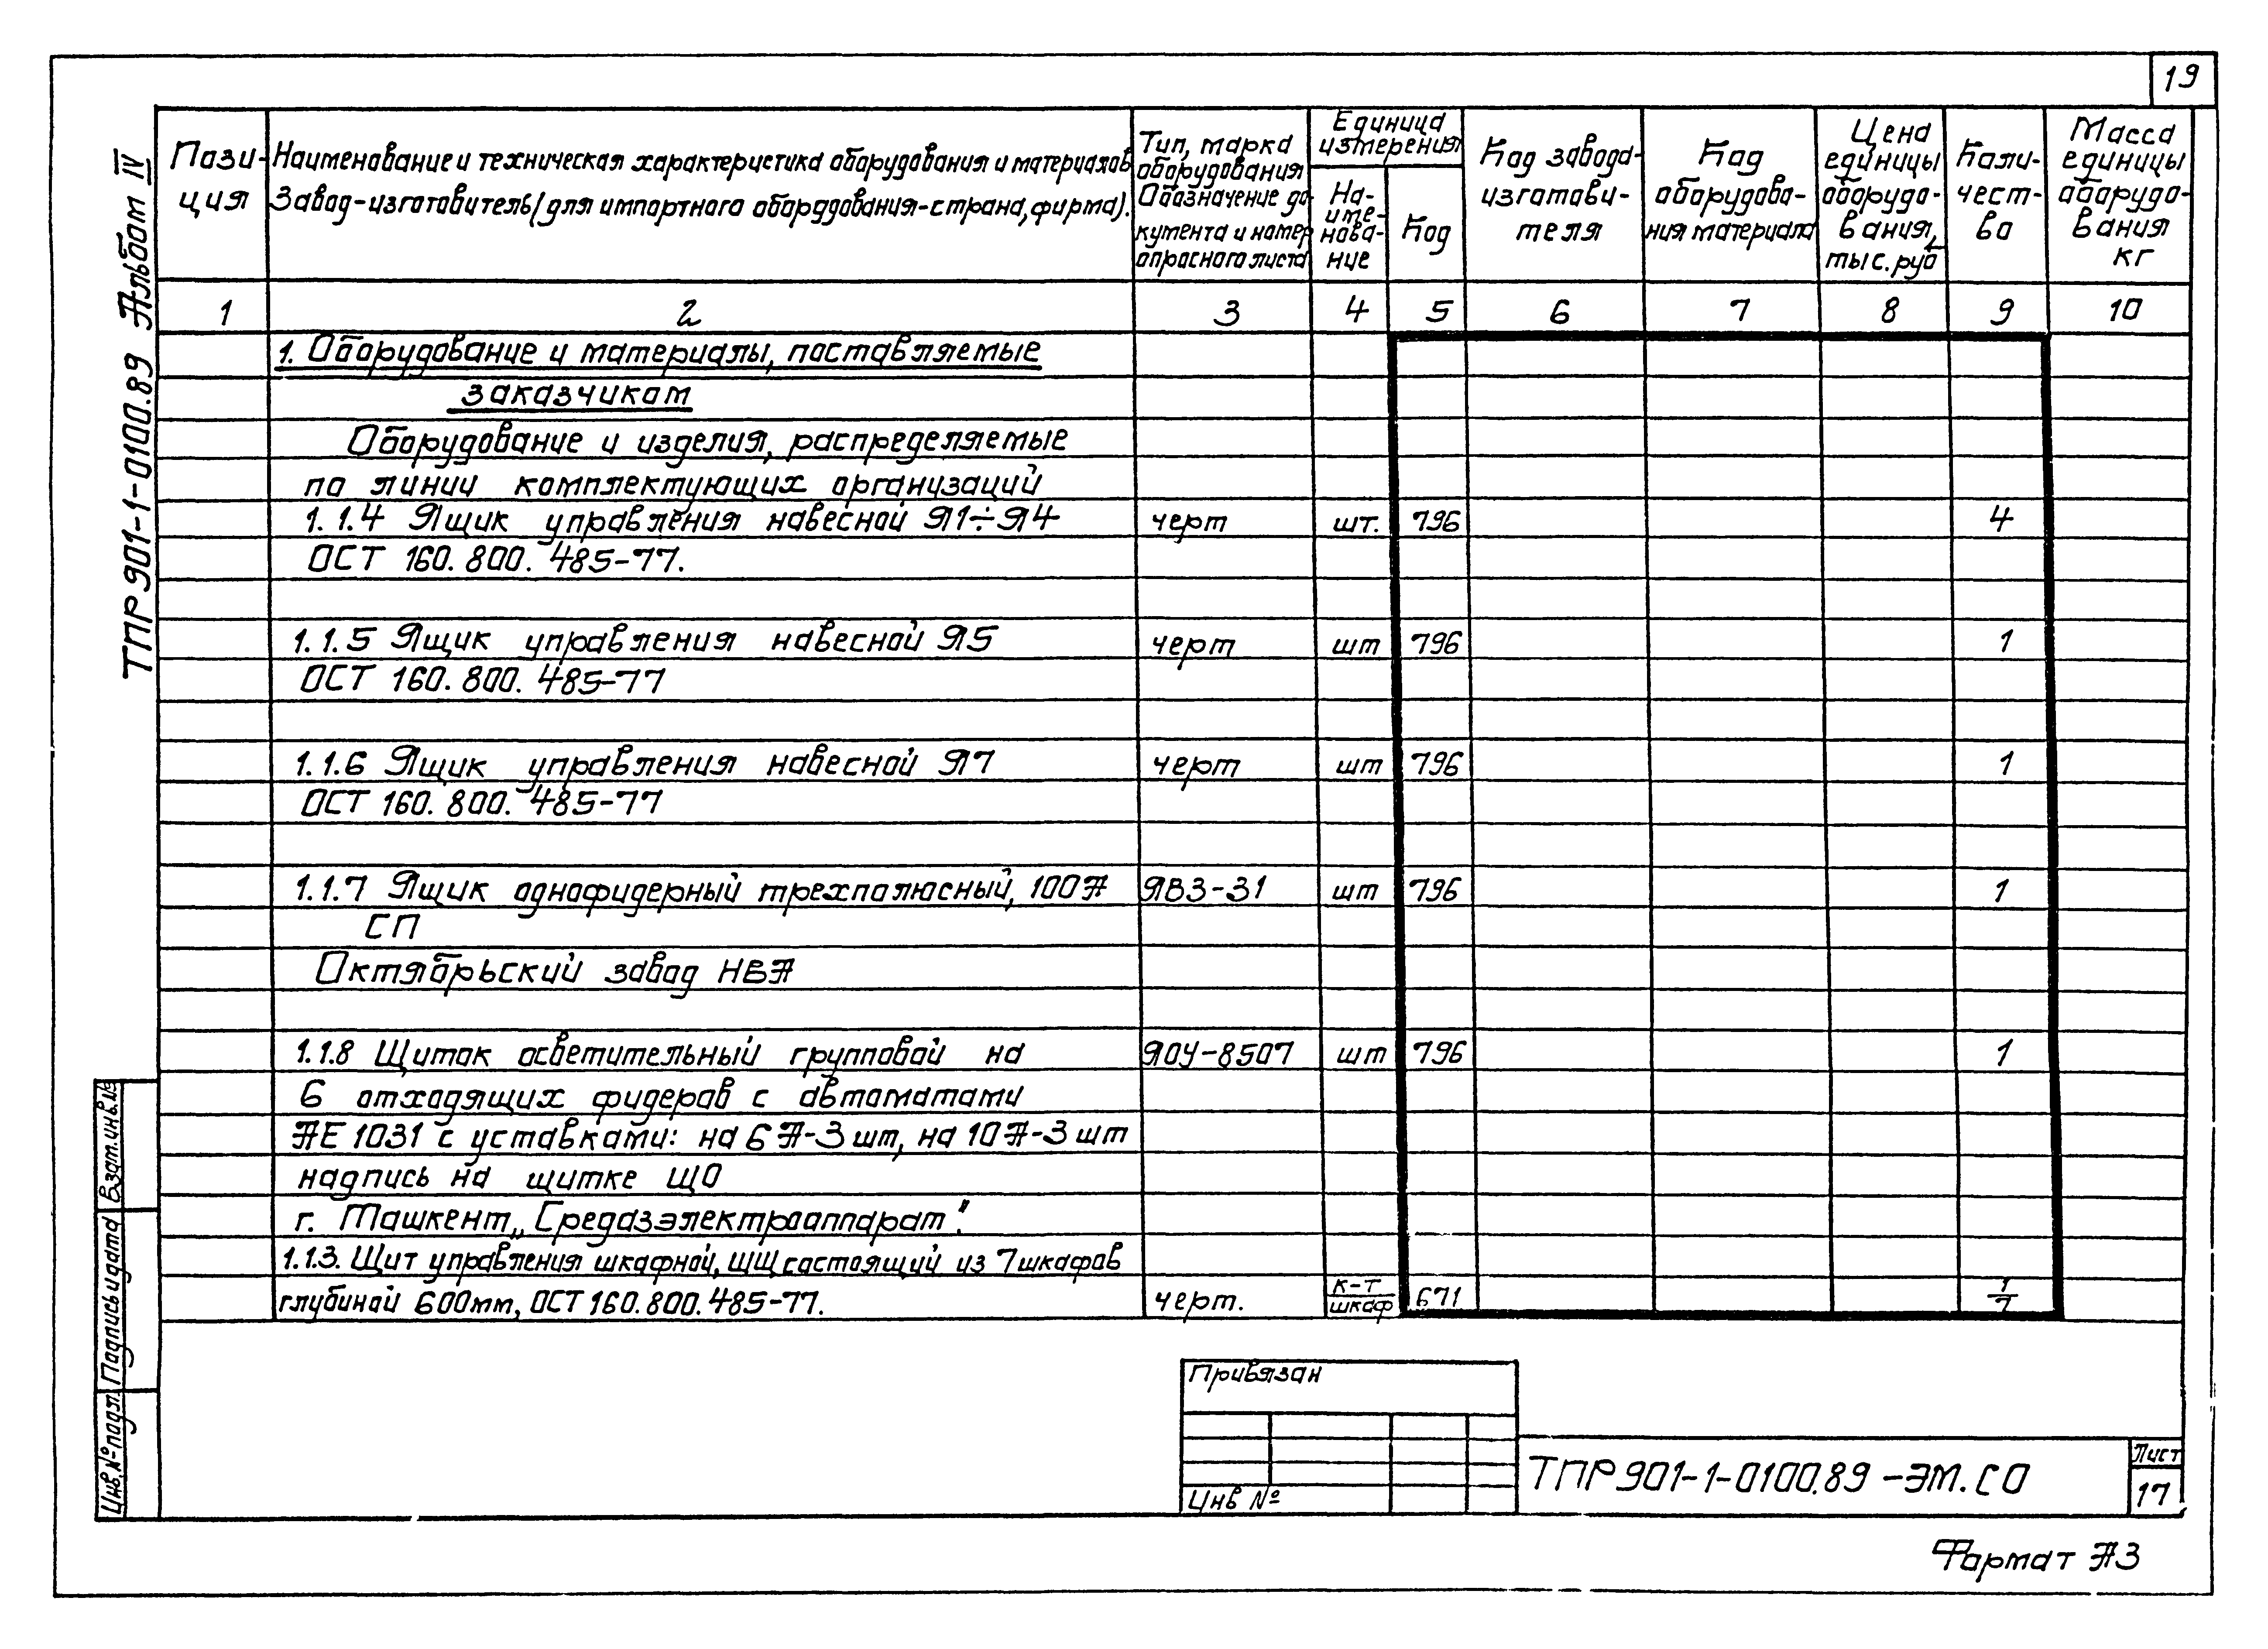 19
ТПР 901-1-0100.89 Альбом IV
Пози-
ция
Наименование и техническая характеристика оборудования и материалов
Завод-изготовитель (для импортного оборудования-страна, фирма).
Тип, марка
оборудования
Обозначение до-
кумента и номер
опросного листа
Единица
измерения
На-
име-
нова-
ние
Код
Код завода-
изготови-
теля
Код
оборудова-
ния материала
Цена
единицы
оборудо-
вания,
тыс. руб
Коли-
чест-
во
Масса
единицы
оборудо-
вания
кг
1 2 3 4 5 6 7 8 9 10
1. Оборудование и материалы, поставляемые
заказчиком
Оборудование и изделия, распределяемые
по линии комплектующих организаций
1.1.4 Ящик управления навесной Я1÷Я4 черт шт. 796 4
ОСТ 160.800.485-77.
1.1.5 Ящик управления навесной Я5 черт шт 796 1
ОСТ 160.800.485-77
1.1.6 Ящик управления навесной Я7 черт шт 796 1
ОСТ 160.800.485-77
1.1.7 Ящик однофидерный трехполюсный, 100А ЯВЗ-31 шт 796 1
СП
Октябрьский завод НВА
1.1.8 Щиток осветительный групповой на ЯОУ-8507 шт 796 1
6 отходящих фидеров с автоматами
АЕ 1031 с уставками: на 6А-3 шт, на 10А-3 шт
надпись на щитке ЩО
г. Ташкент „Средазэлектроаппарат".
1.1.3. Щит управления шкафной, ЩЩ состоящий из 7 шкафов
глубиной 600мм, ОСТ 160.800.485-77. черт. к-т/шкаф 671 1/7
Взам. инв. №
Подпись и дата
Инв. № подл.
Привязан
Инв №
ТПР 901-1-0100.89 -ЭМ.СО
Лист
17
Формат А3